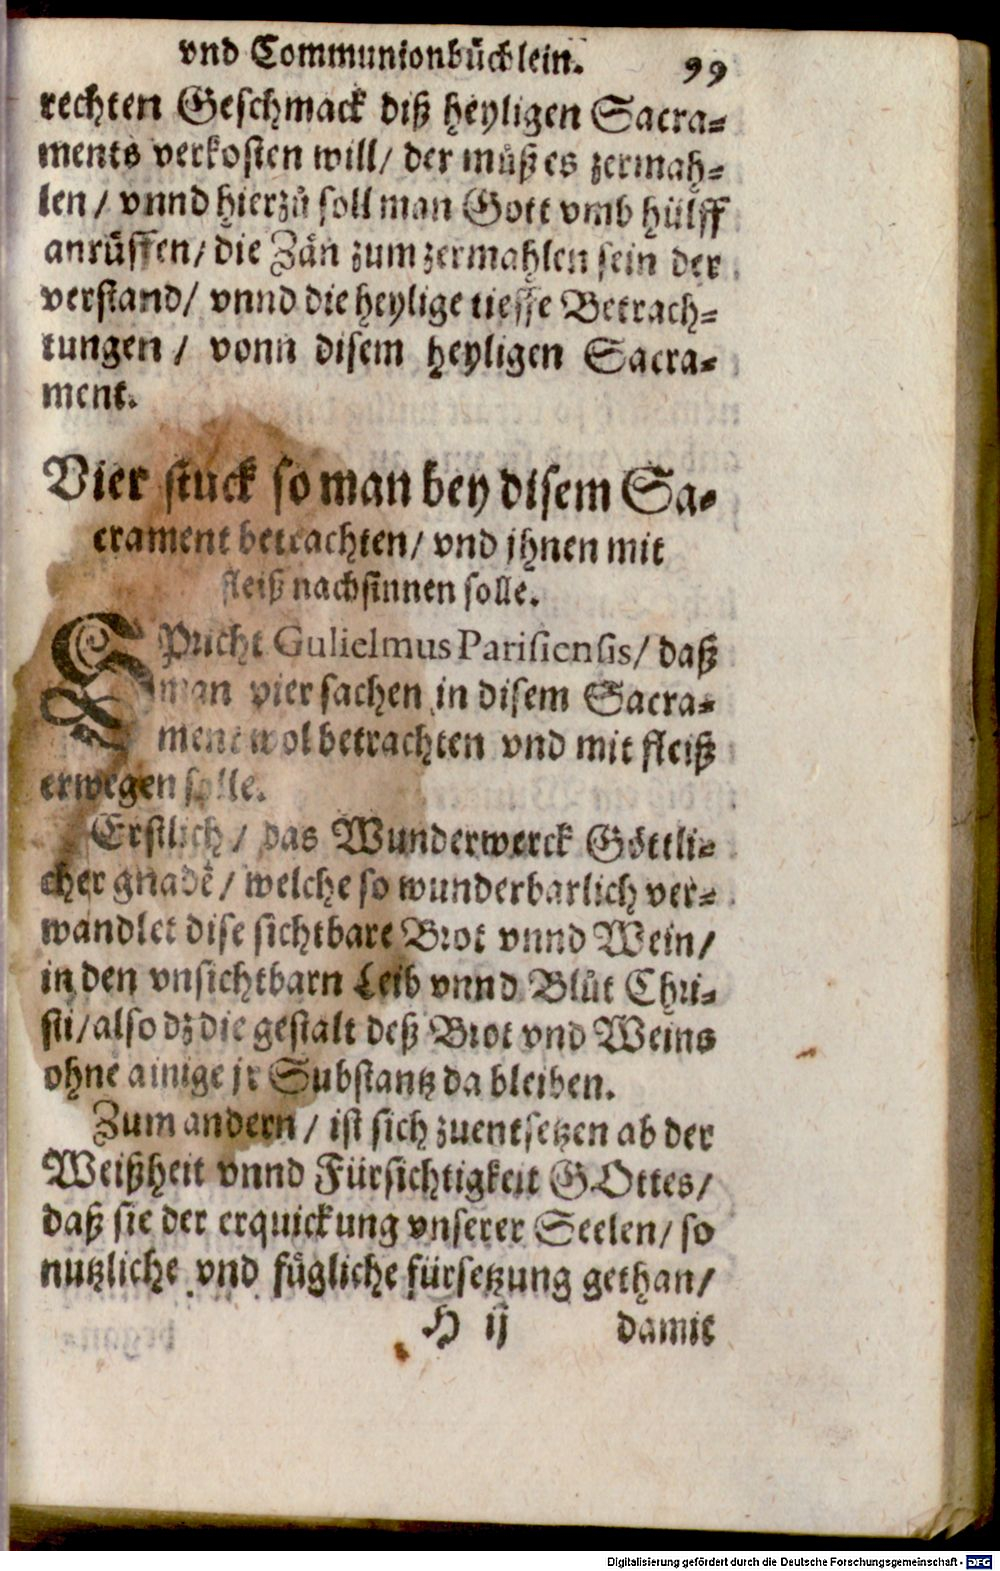 vnd Communionbüchlein. 99
rechten Geschmack diß heyligen Sacra-
ments verkosten will/ der müß es zermah-
len/ vnnd hierzů soll man Gott vmb hülff
anrüffen/ die Zän zum zermahlen sein der
verstand/ vnnd die heylige tieffe Betrach-
tungen/ vonn disem heyligen Sacra-
ment.
Vier stuck so man bey disem Sa-
crament betrachten/ vnd jhnen mit
fleiß nachsinnen solle.
SPricht Gulielmus Parisiensis/ daß
man vier sachen in disem Sacra-
ment wol betrachten vnd mit fleiß
erwegen solle.
Erstlich/ das Wunderwerck Göttli-
cher gnadẽ/ welche so wunderbarlich ver-
wandlet dise sichtbare Brot vnnd Wein/
in den vnsichtbarn Leib vnnd Blůt Chri-
sti/ also dz die gestalt deß Brot vnd Weins
ohne ainige jr Substantz da bleiben.
Zum andern/ ist sich zuentsetzen ab der
Weißheit vnnd Fürsichtigkeit GOttes/
daß sie der erquickung vnserer Seelen/ so
nutzliche vnd fůgliche fürsetzung gethan/
H ij damit
Digitalisierung gefördert durch die Deutsche Forschungsgemeinschaft - DFG